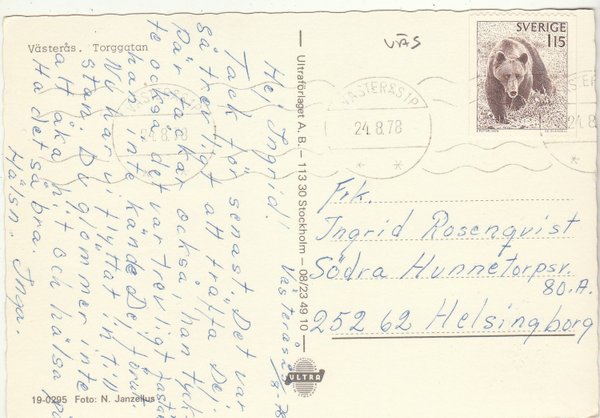 Västerås. Torggatan
VÄS
SVERIGE
1 15
VÄSTERÅS 1P
24. 8. 78
VÄSTERÅS 1P
24. 8. 78
Västerås 23/8-78
Hej Ingrid!
Tack för senast. Det var
så trevligt att träffa Dej.
Pär tackar också, han tyck-
te också det var trevligt fastän
han inte kände Dej förut.
Ny har vi flyttat in till
stan. Du glömmer inte
att åka hit och hälsa på
Ha det så bra
Hälsn. Inga.
Ultraförlaget A. B. — 113 30 Stockholm — 08/23 49 10
ULTRA
Frk.
Ingrid Rosenqvist
Södra Hunnetorpsv.
80.A.
252 62 Helsingborg
19-0295 Foto: N. Janzelius